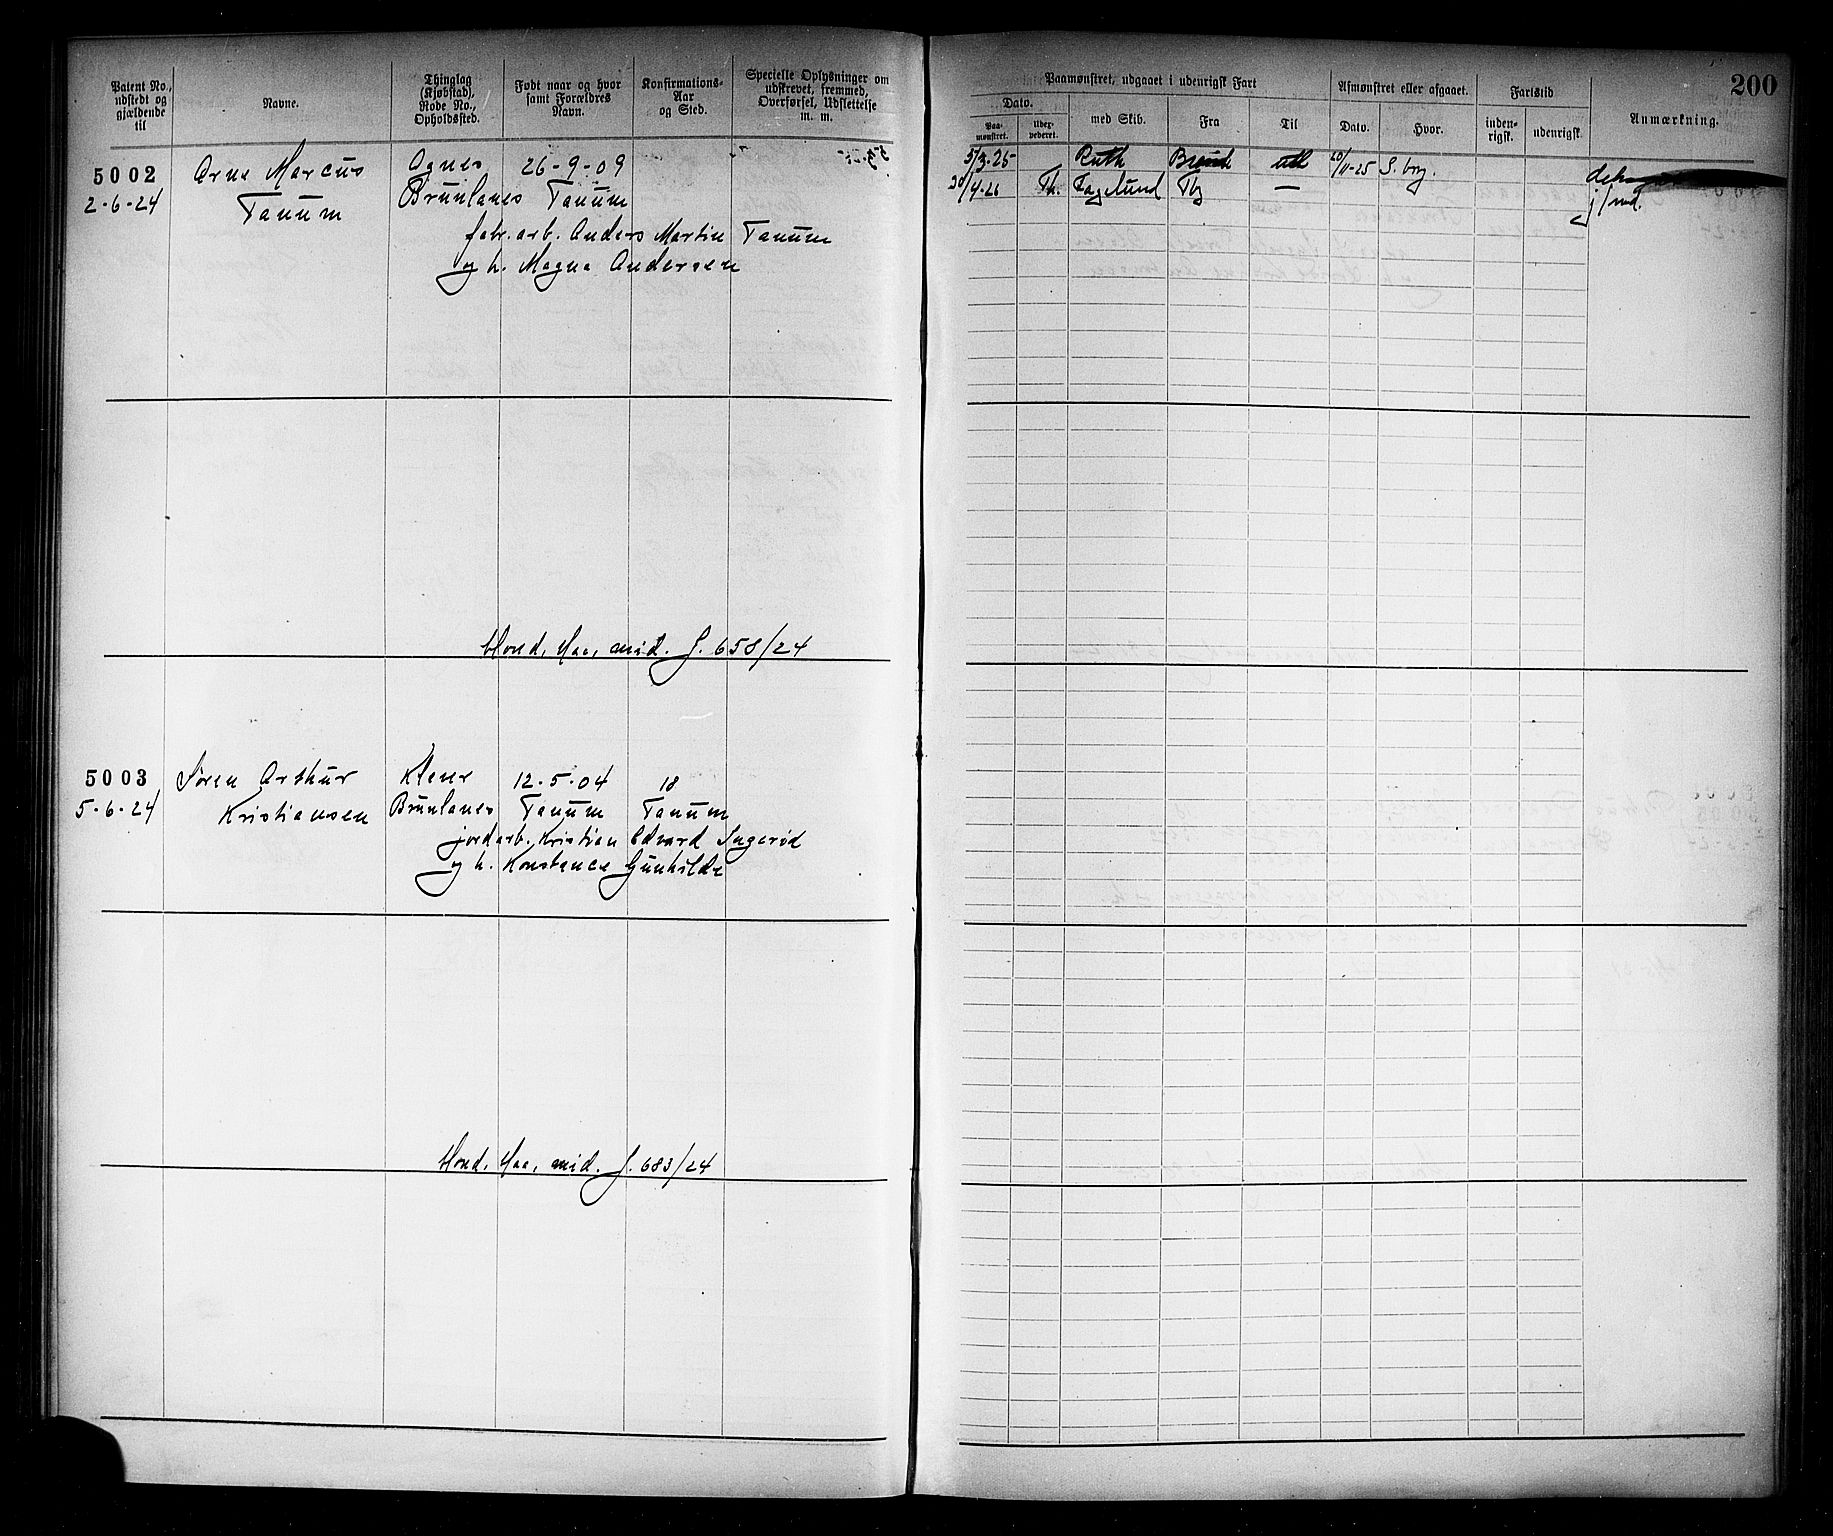 200
Patent No., udstedt og gjældende til
Navne.
Thinglag (Kjøbstad), Rode No., Opholdssted.
Født naar og hvor samt Forældres Navn.
Konfirmations-Aar og Sted.
Specielle Oplysninger om udskrevet, fremmed, Overførsel, Udslettelse m. m.
Paamønstret, udgaaet i udenrigsk Fart
Afmønstret eller afgaaet.
Fartstid
Anmærkning.
Dato.
med Skib.
Fra
Til
Dato.
Hvor.
inden-rigsk.
udenrigsk
Paa-mønstret.
5002 Arne Marcus Agnes 26-9-09
2-6-24 Tanum Brunlanes Tanum
fabr.arb. Anders Martin Tanum
og h. Magna Andersen
5/3-25 Ruth 20/11-25 S. brg.
20/4-26 Th. Fagelund Tbg —
blond, blaa, mid. J. 658/24
5003 Søren Arthur 12-5-04 18
5-6-24 Kristiansen Brunlanes Tanum Tanum
jordarb. Kristian Edvard
og h. Konstance Gunhilde
blond, blaa, mid. J. 683/24